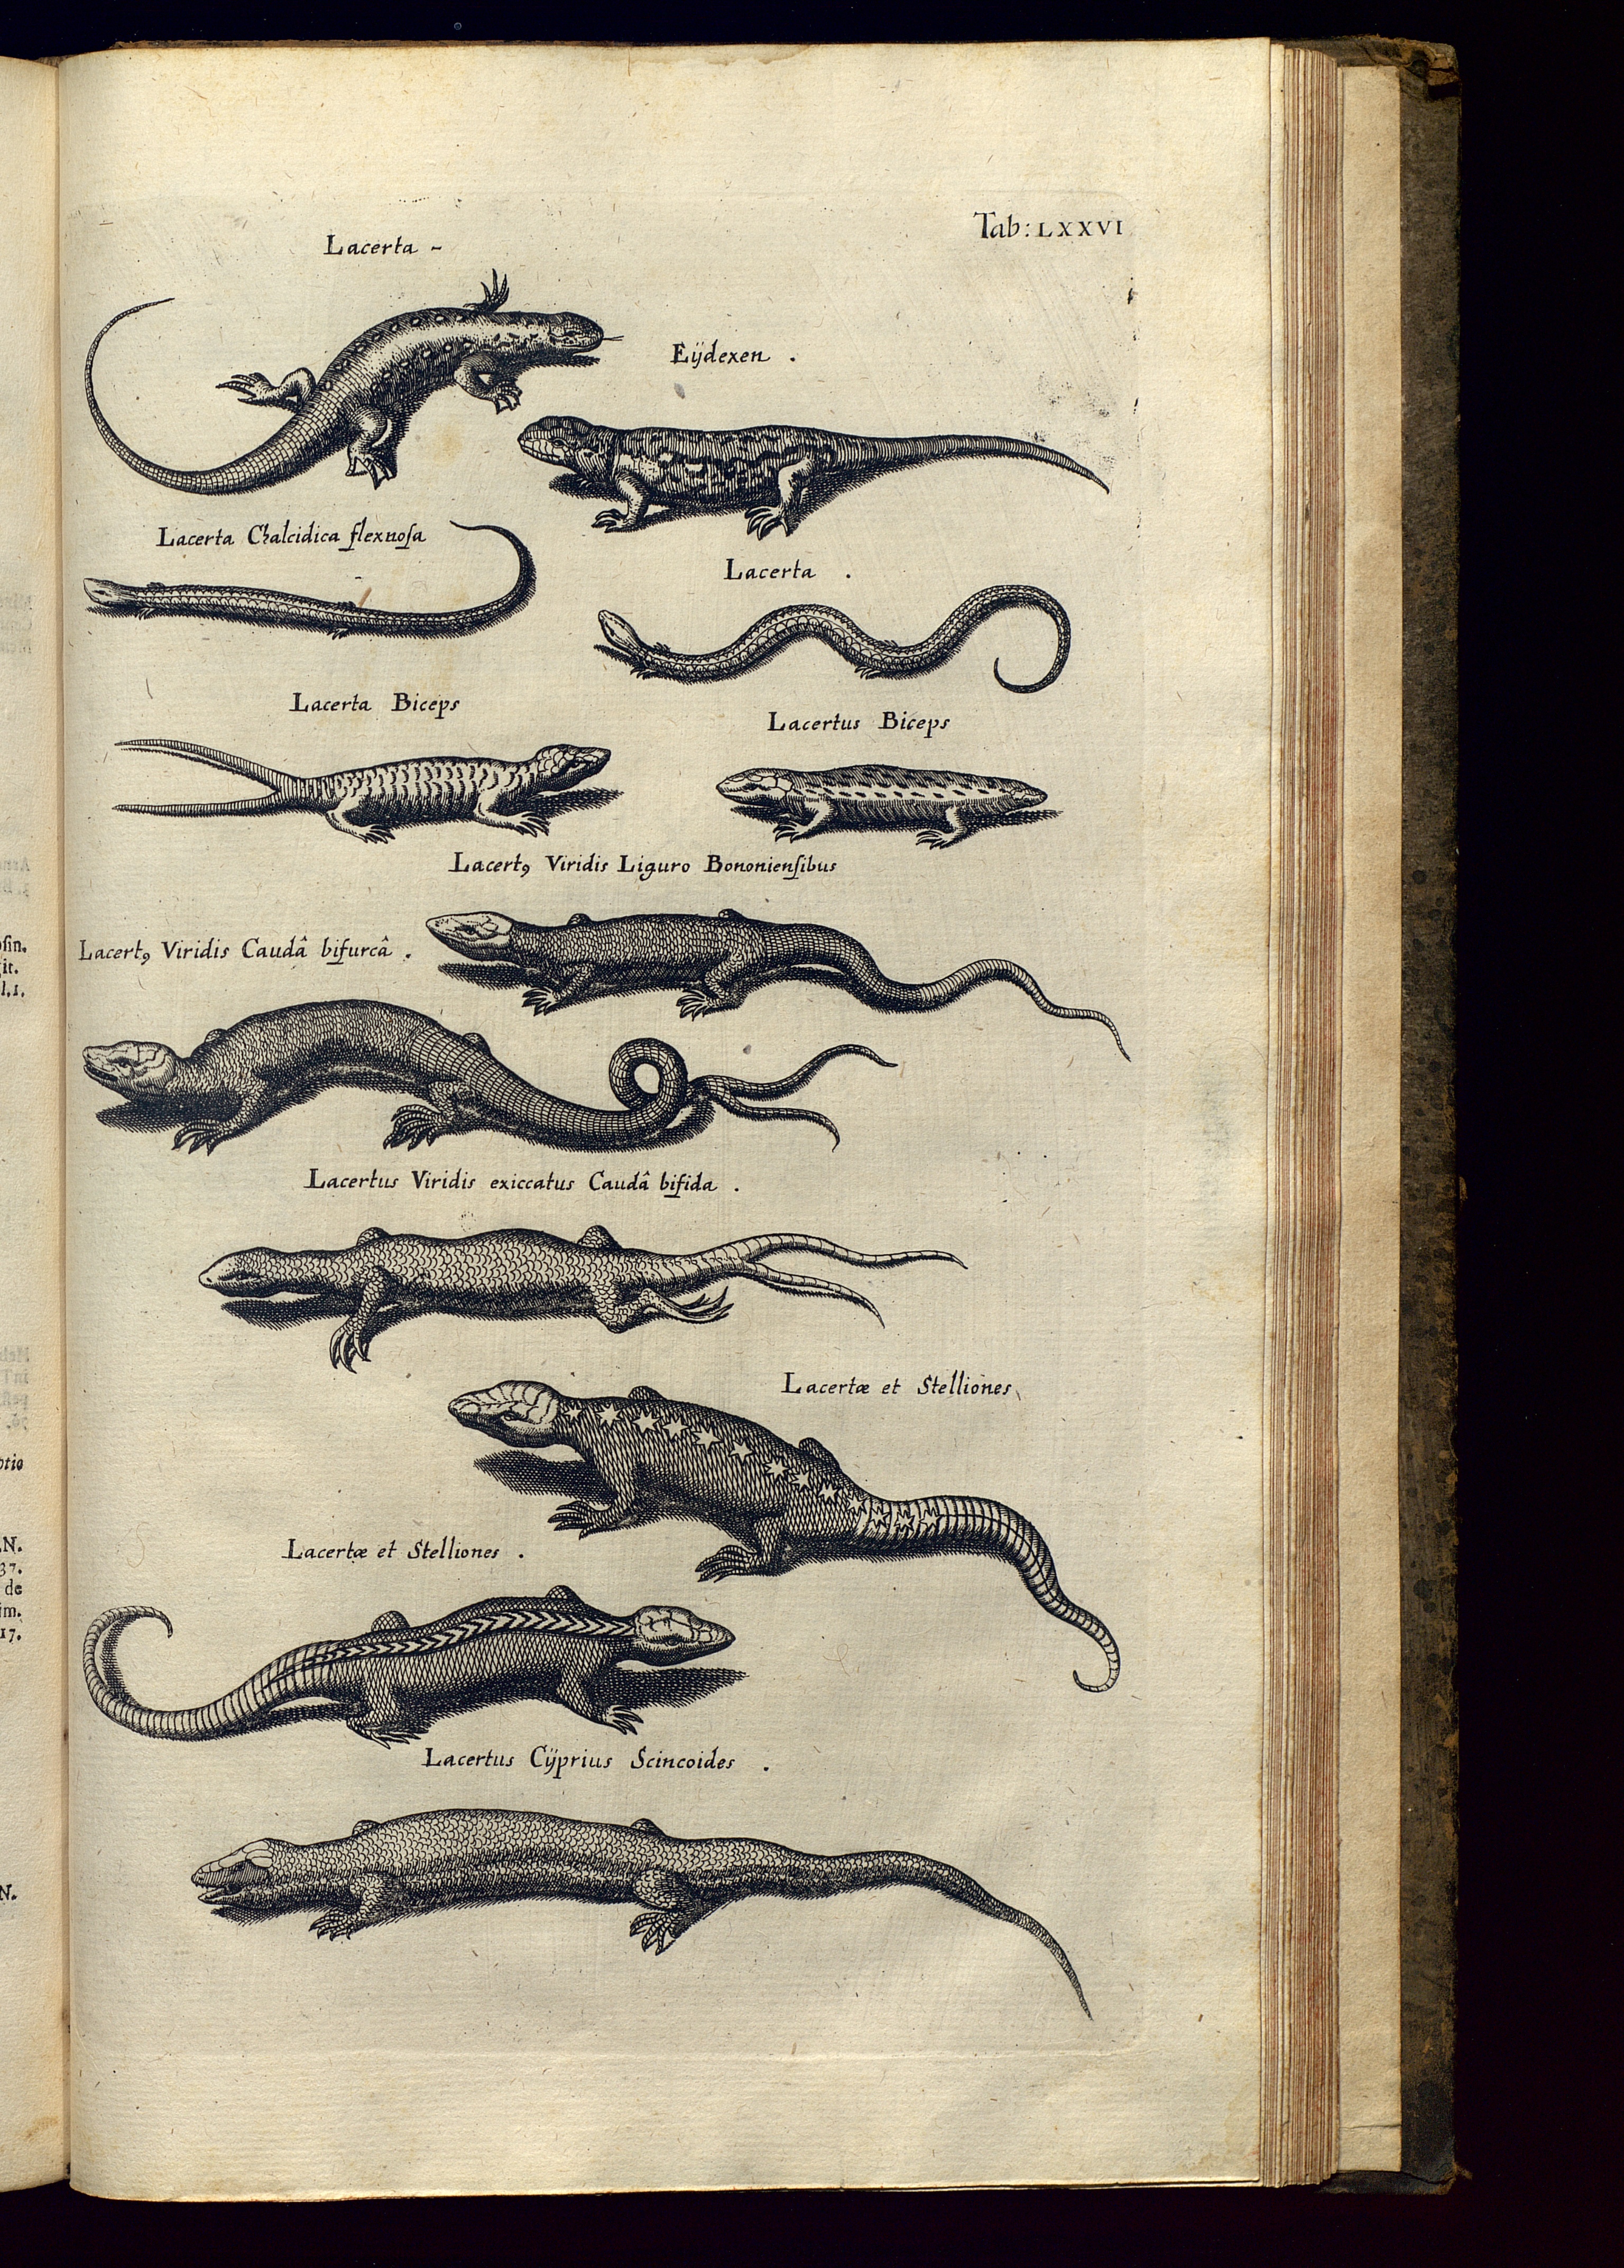 Tab: LXXVI
Lacerta -
Eÿdexen .
Lacerta Chalcidica flexnoſa
Lacerta .
Lacerta Biceps
Lacertus Biceps
Lacertꝰ Viridis Liguro Bononienſibus
Lacertꝰ Viridis Caudâ bifurcâ .
Lacertus Viridis exiccatus Caudâ bifida .
Lacertæ et Stelliones
Lacertæ et Stelliones .
Lacertus Cÿprius Scincoides .
oſin.
it.
l.1.
ptio
N.
37.
de
im.
17.
N.